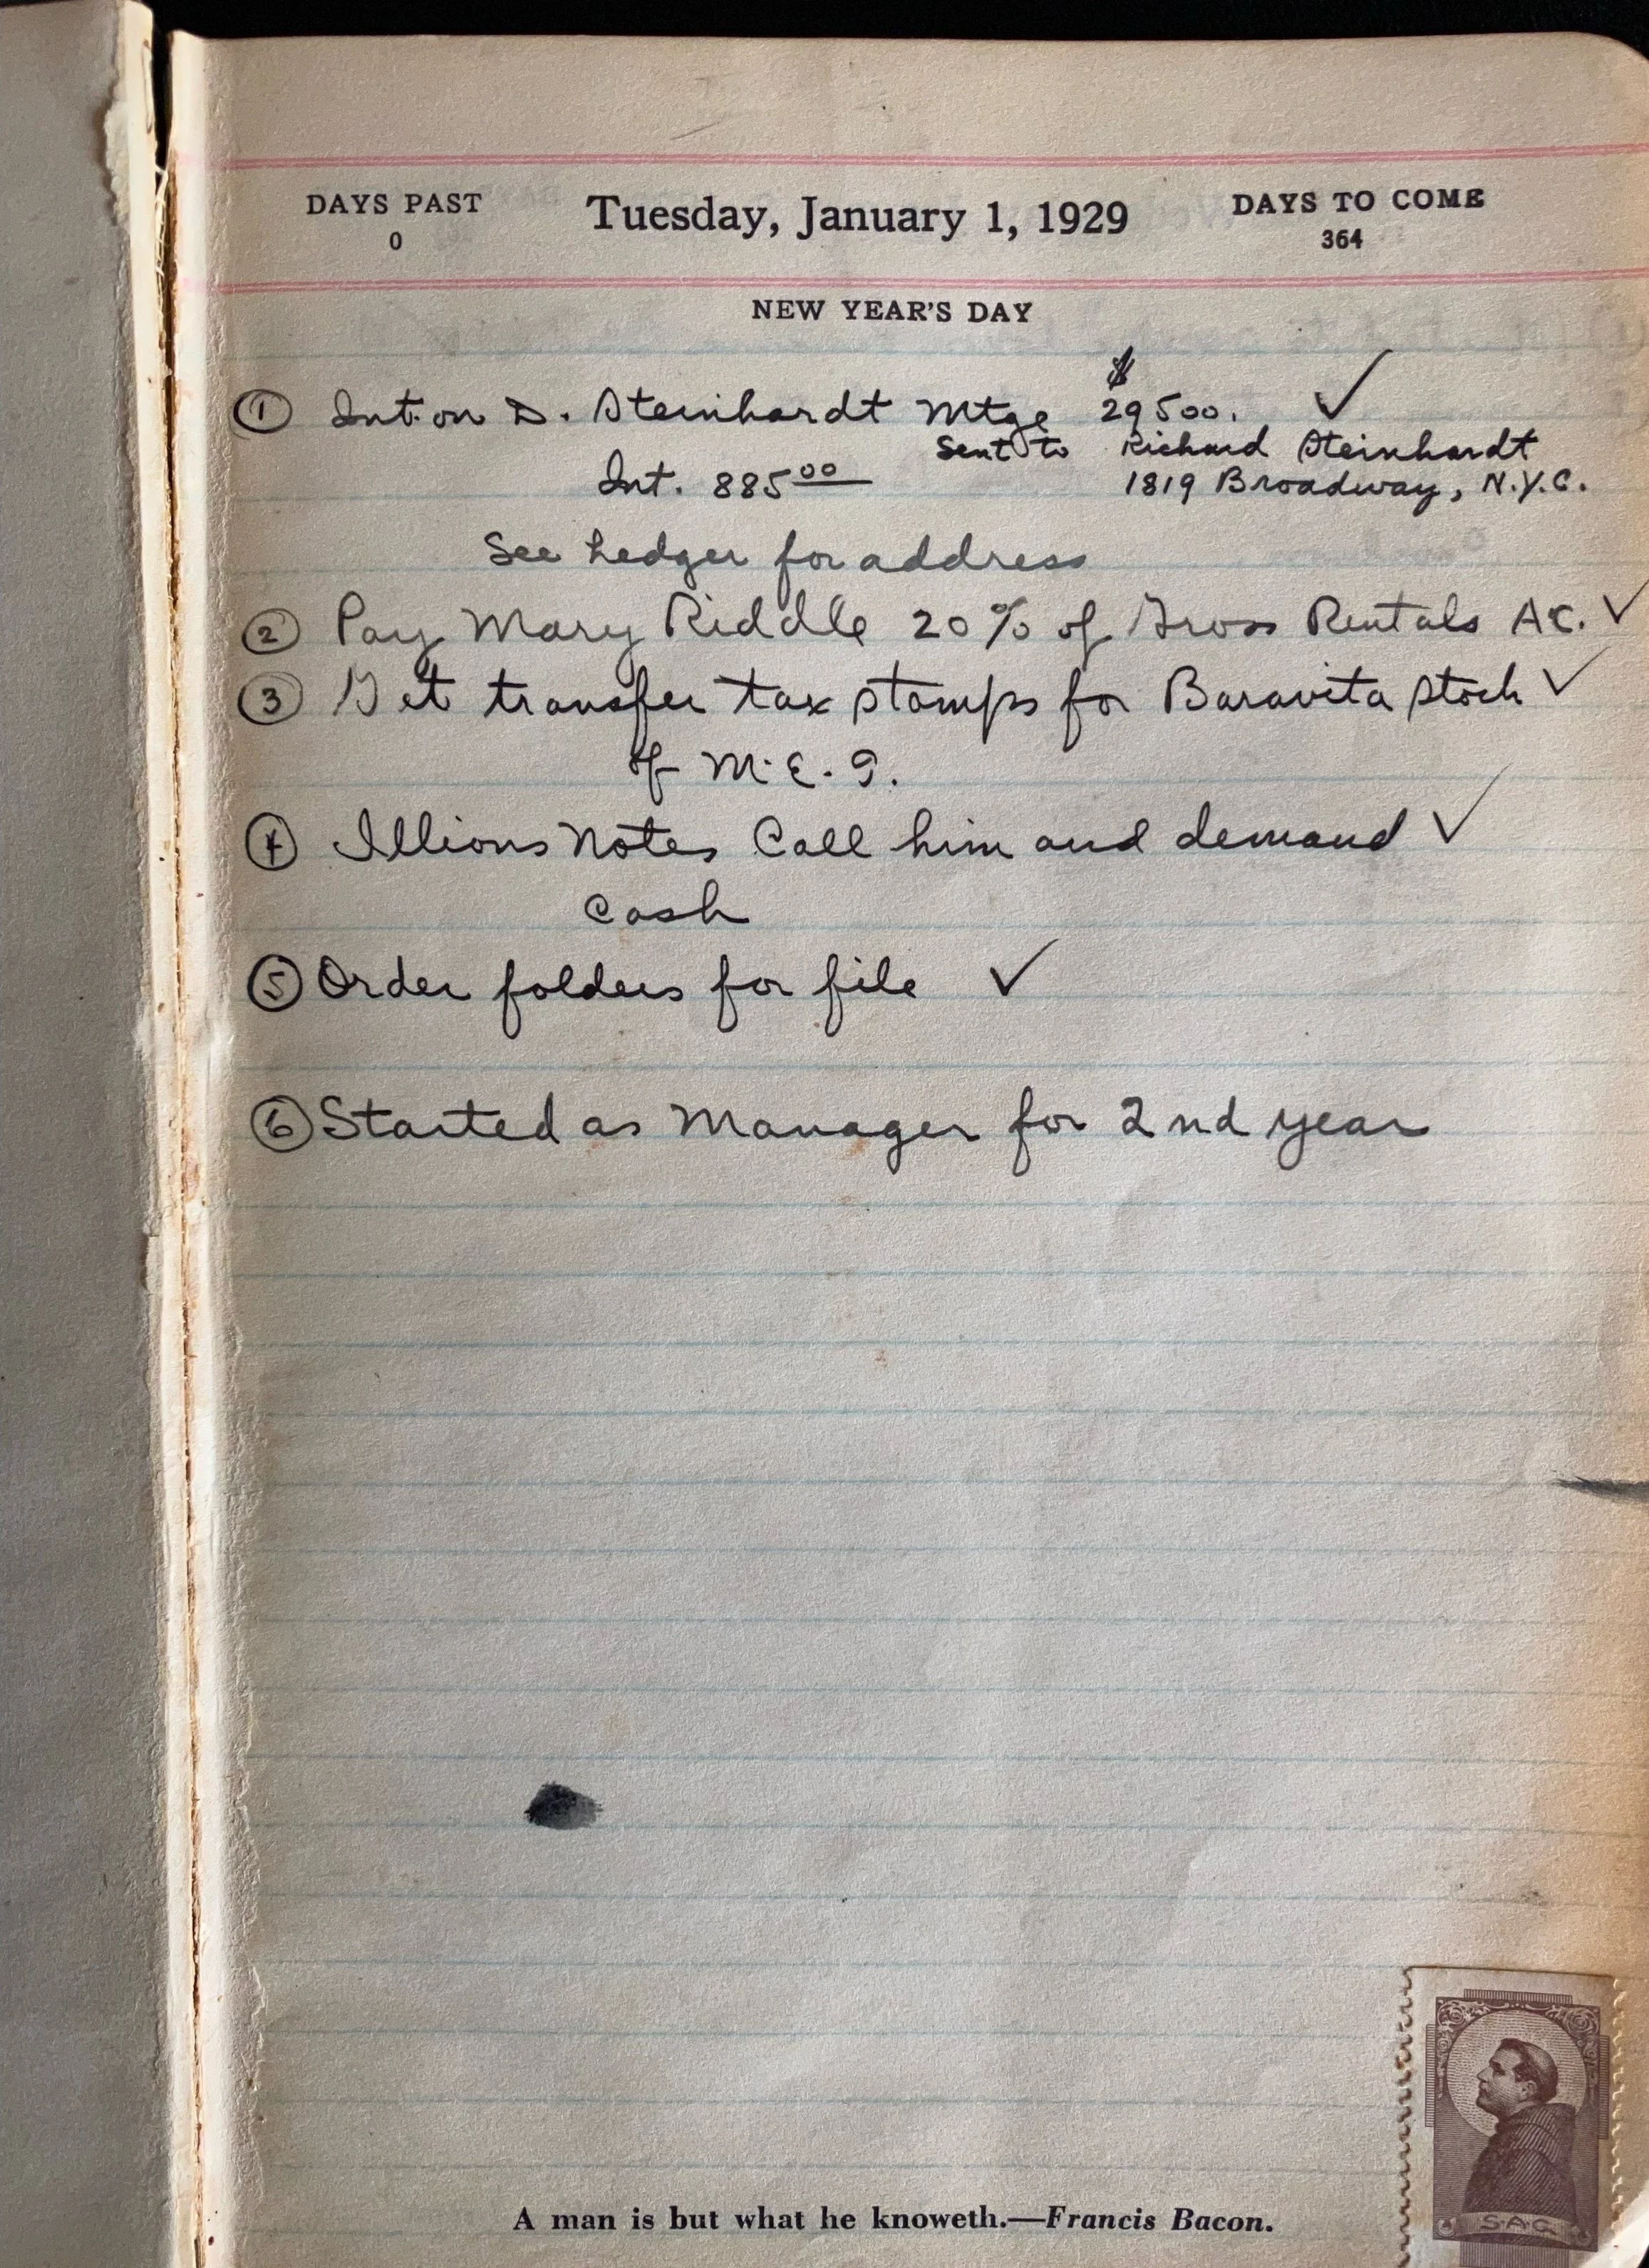 DAYS PAST
0
Tuesday, January 1, 1929
DAYS TO COME
364
NEW YEAR'S DAY
① Int. on D. Steinhardt Mtge $29500. ✓
Sent to Richard Steinhardt
Int. 885⁰⁰ 1819 Broadway, N.Y.C.
See Ledger for address
② Pay Mary Riddle 20% of Gross Rentals ✓
③ Get transfer tax stamps for Baravita stock ✓
of M.E.G.
④ Illions Notes Call him and demand ✓
Cash
⑤ Order folders for file ✓
⑥ Started as Manager for 2nd year
A man is but what he knoweth.—Francis Bacon.
S.A.G.